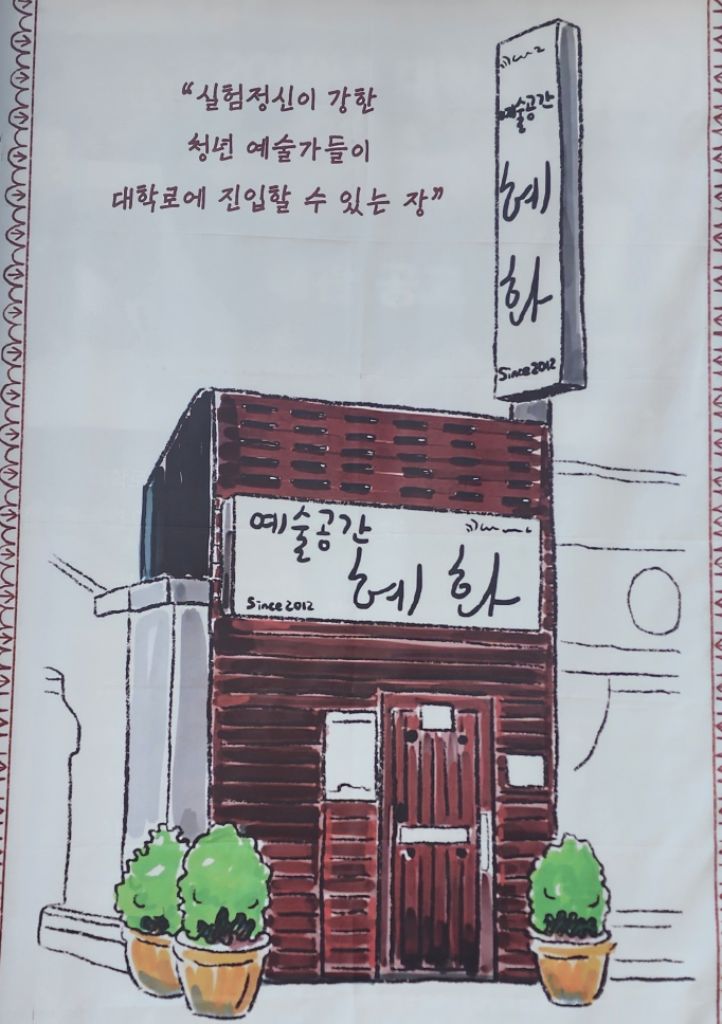 “실험정신이 강한
청년 예술가들이
대학로에 진입할 수 있는 장”
예술공간
혜
화
Since 2012
예술공간
혜화
Since 2012